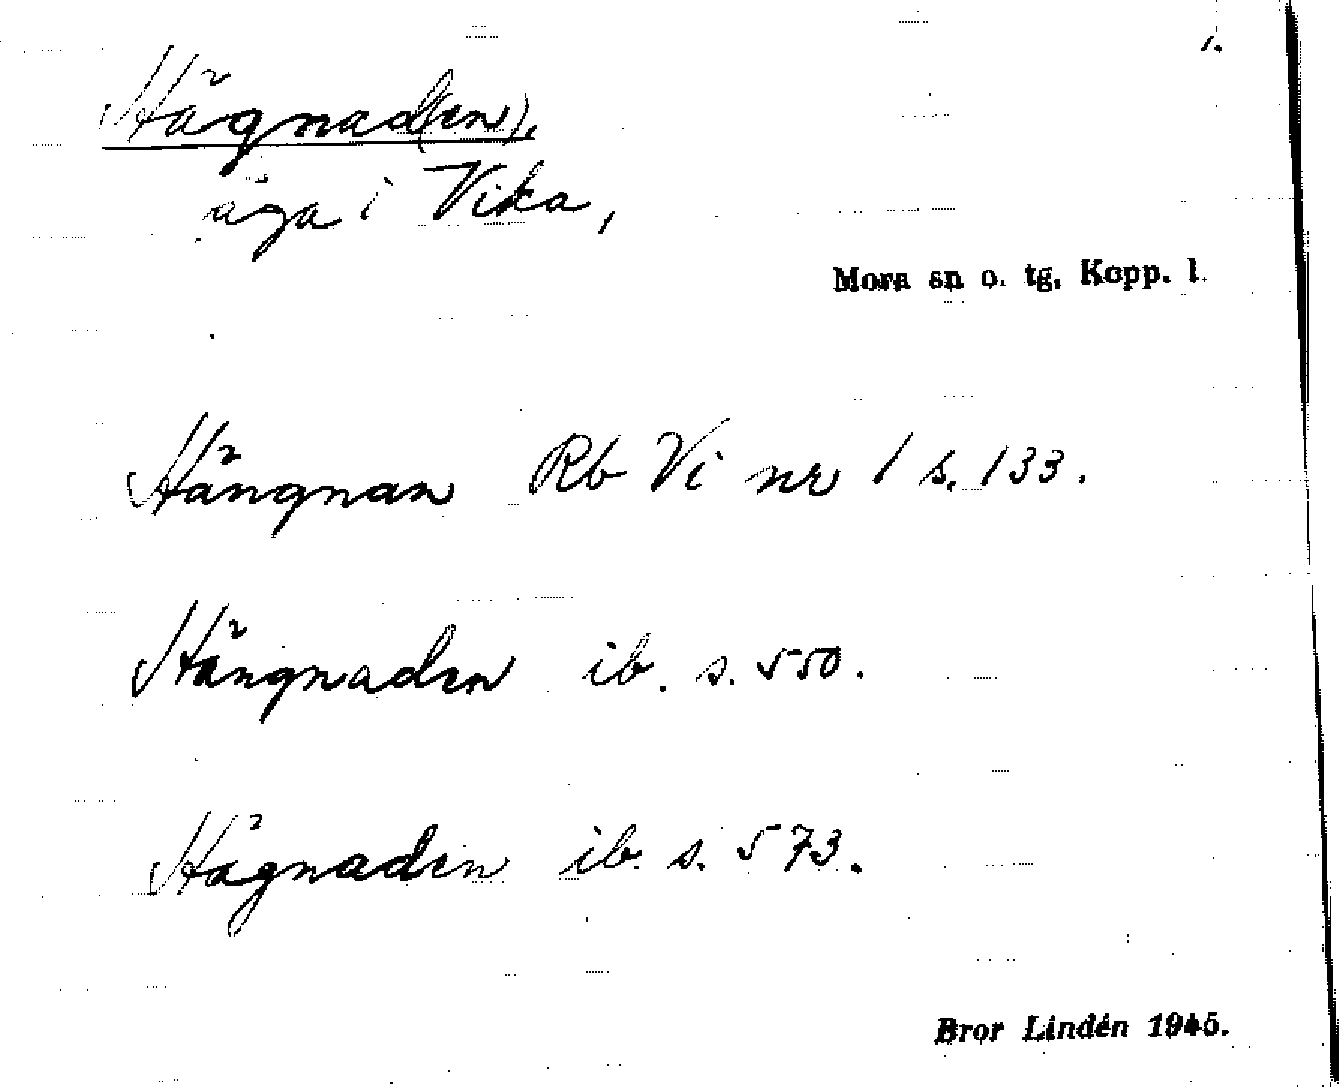 1.
Hägnad(en),
äga i Vika,
Mora sn o. tg. Kopp. l.
Hängnan Rb Vi nr 1 s. 133.
Hängnaden ib. s. 550.
Hägnaden ib. s. 573.
Bror Lindén 1945.